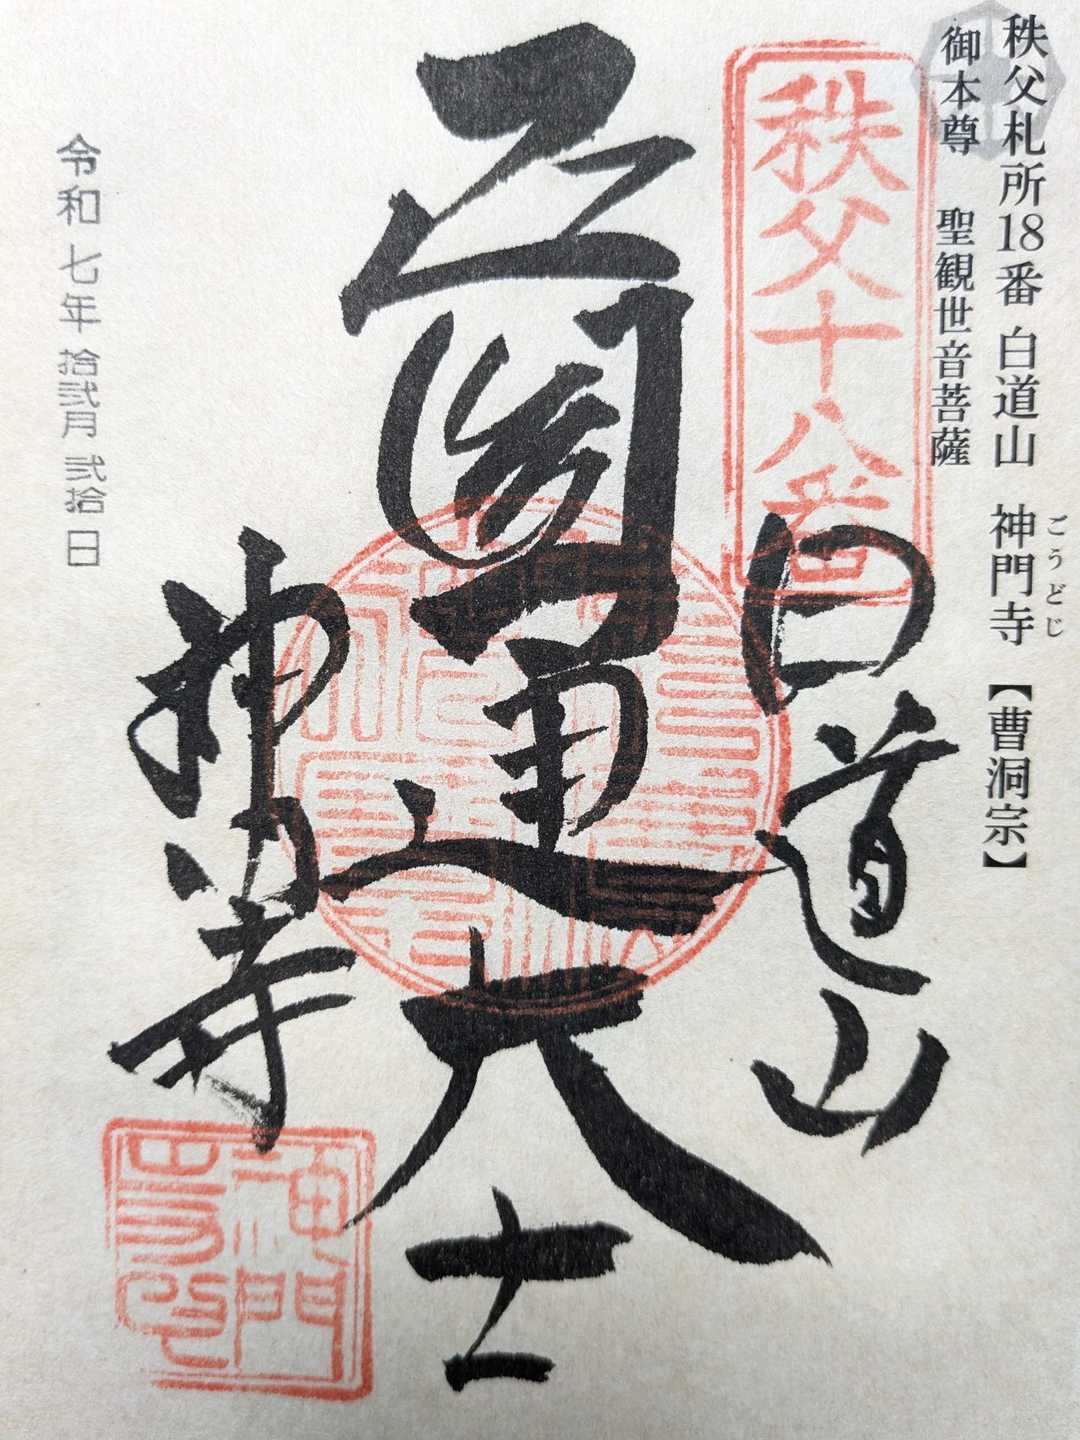 秩父札所18番 白道山 神門寺【曹洞宗】
ごうどじ
御本尊 聖観世音菩薩
秩父十八番
白道山
正圓通大士
神門寺
令和七年拾弐月弐拾日
神門寺印